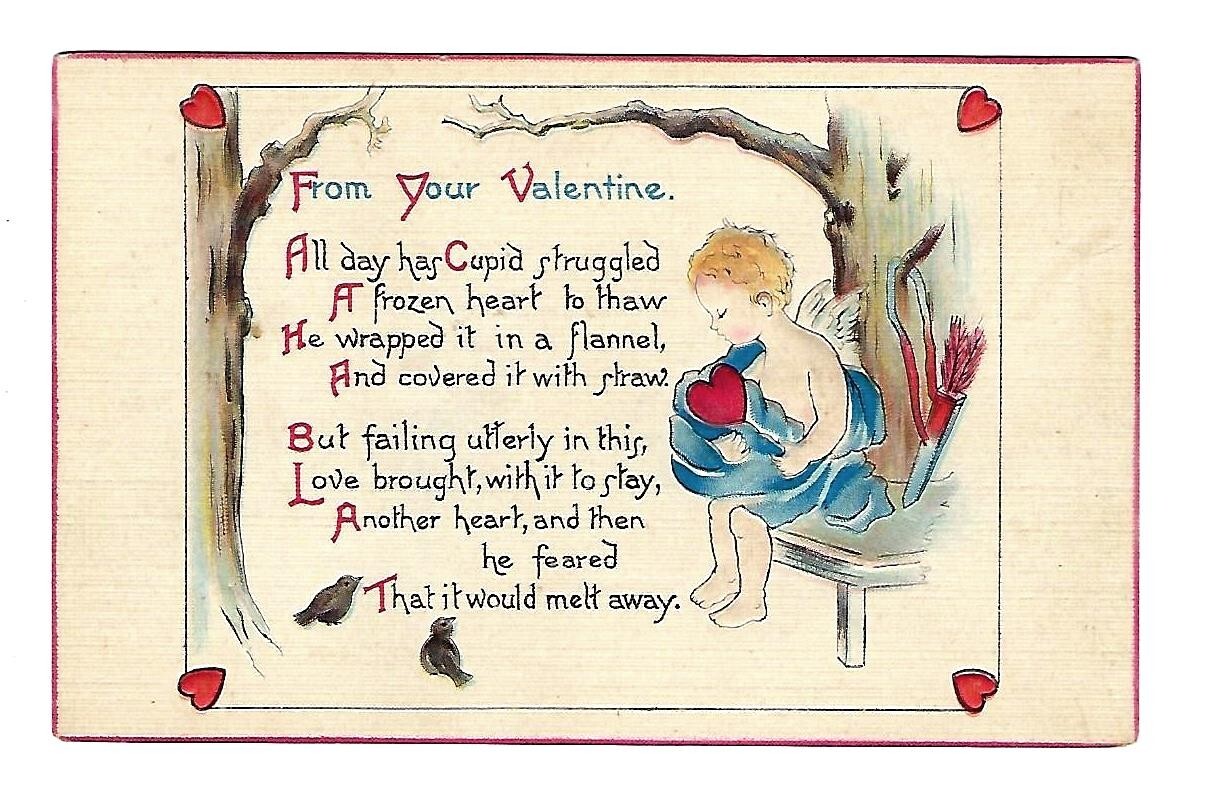 From Your Valentine.
All day has Cupid struggled
A frozen heart to thaw
He wrapped it in a flannel,
And covered it with straw.
But failing utterly in this,
Love brought, with it to stay,
Another heart, and then
he feared
That it would melt away.